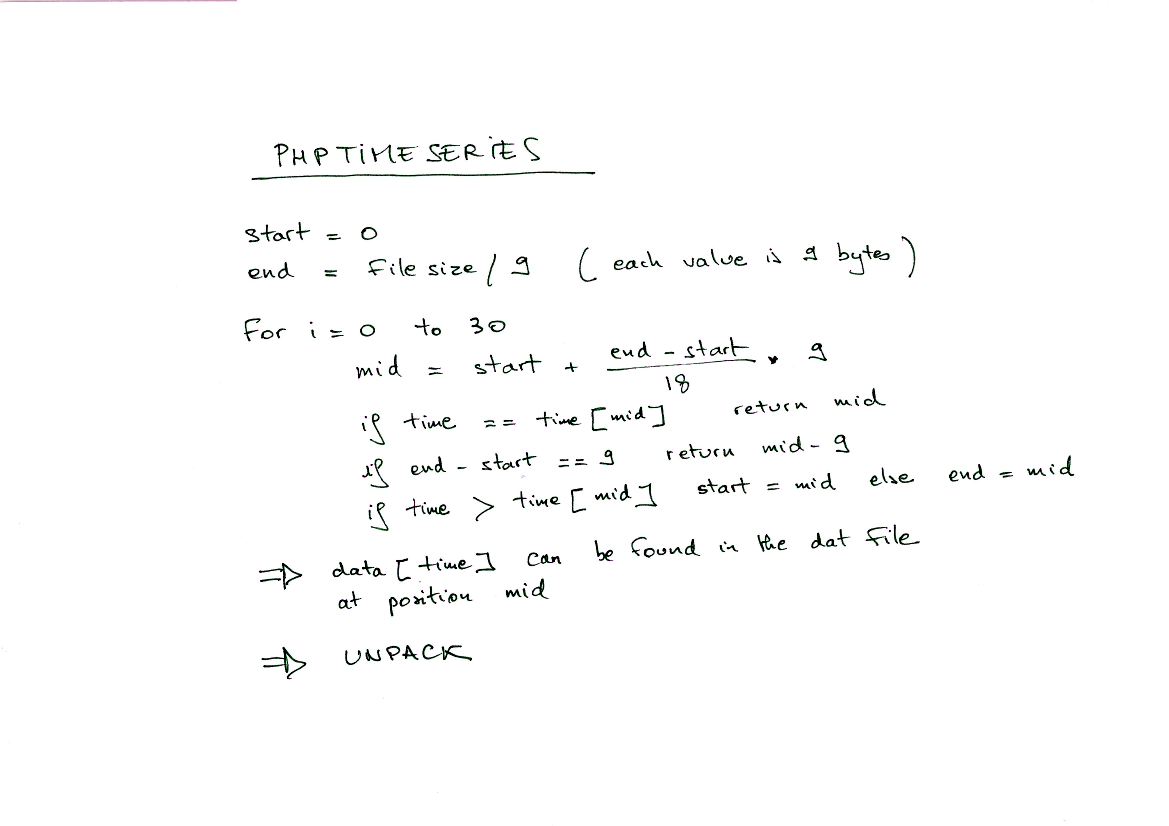 PHPTIMESERIES
start = 0
end = File size / 9 ( each value is 9 bytes )
For i = 0 to 30
mid = start + (end - start)/18 * 9
if time == time [mid] return mid
if end - start == 9 return mid - 9
if time > time [mid] start = mid else end = mid
⇒ data [time] can be found in the dat file
at position mid
⇒ UNPACK